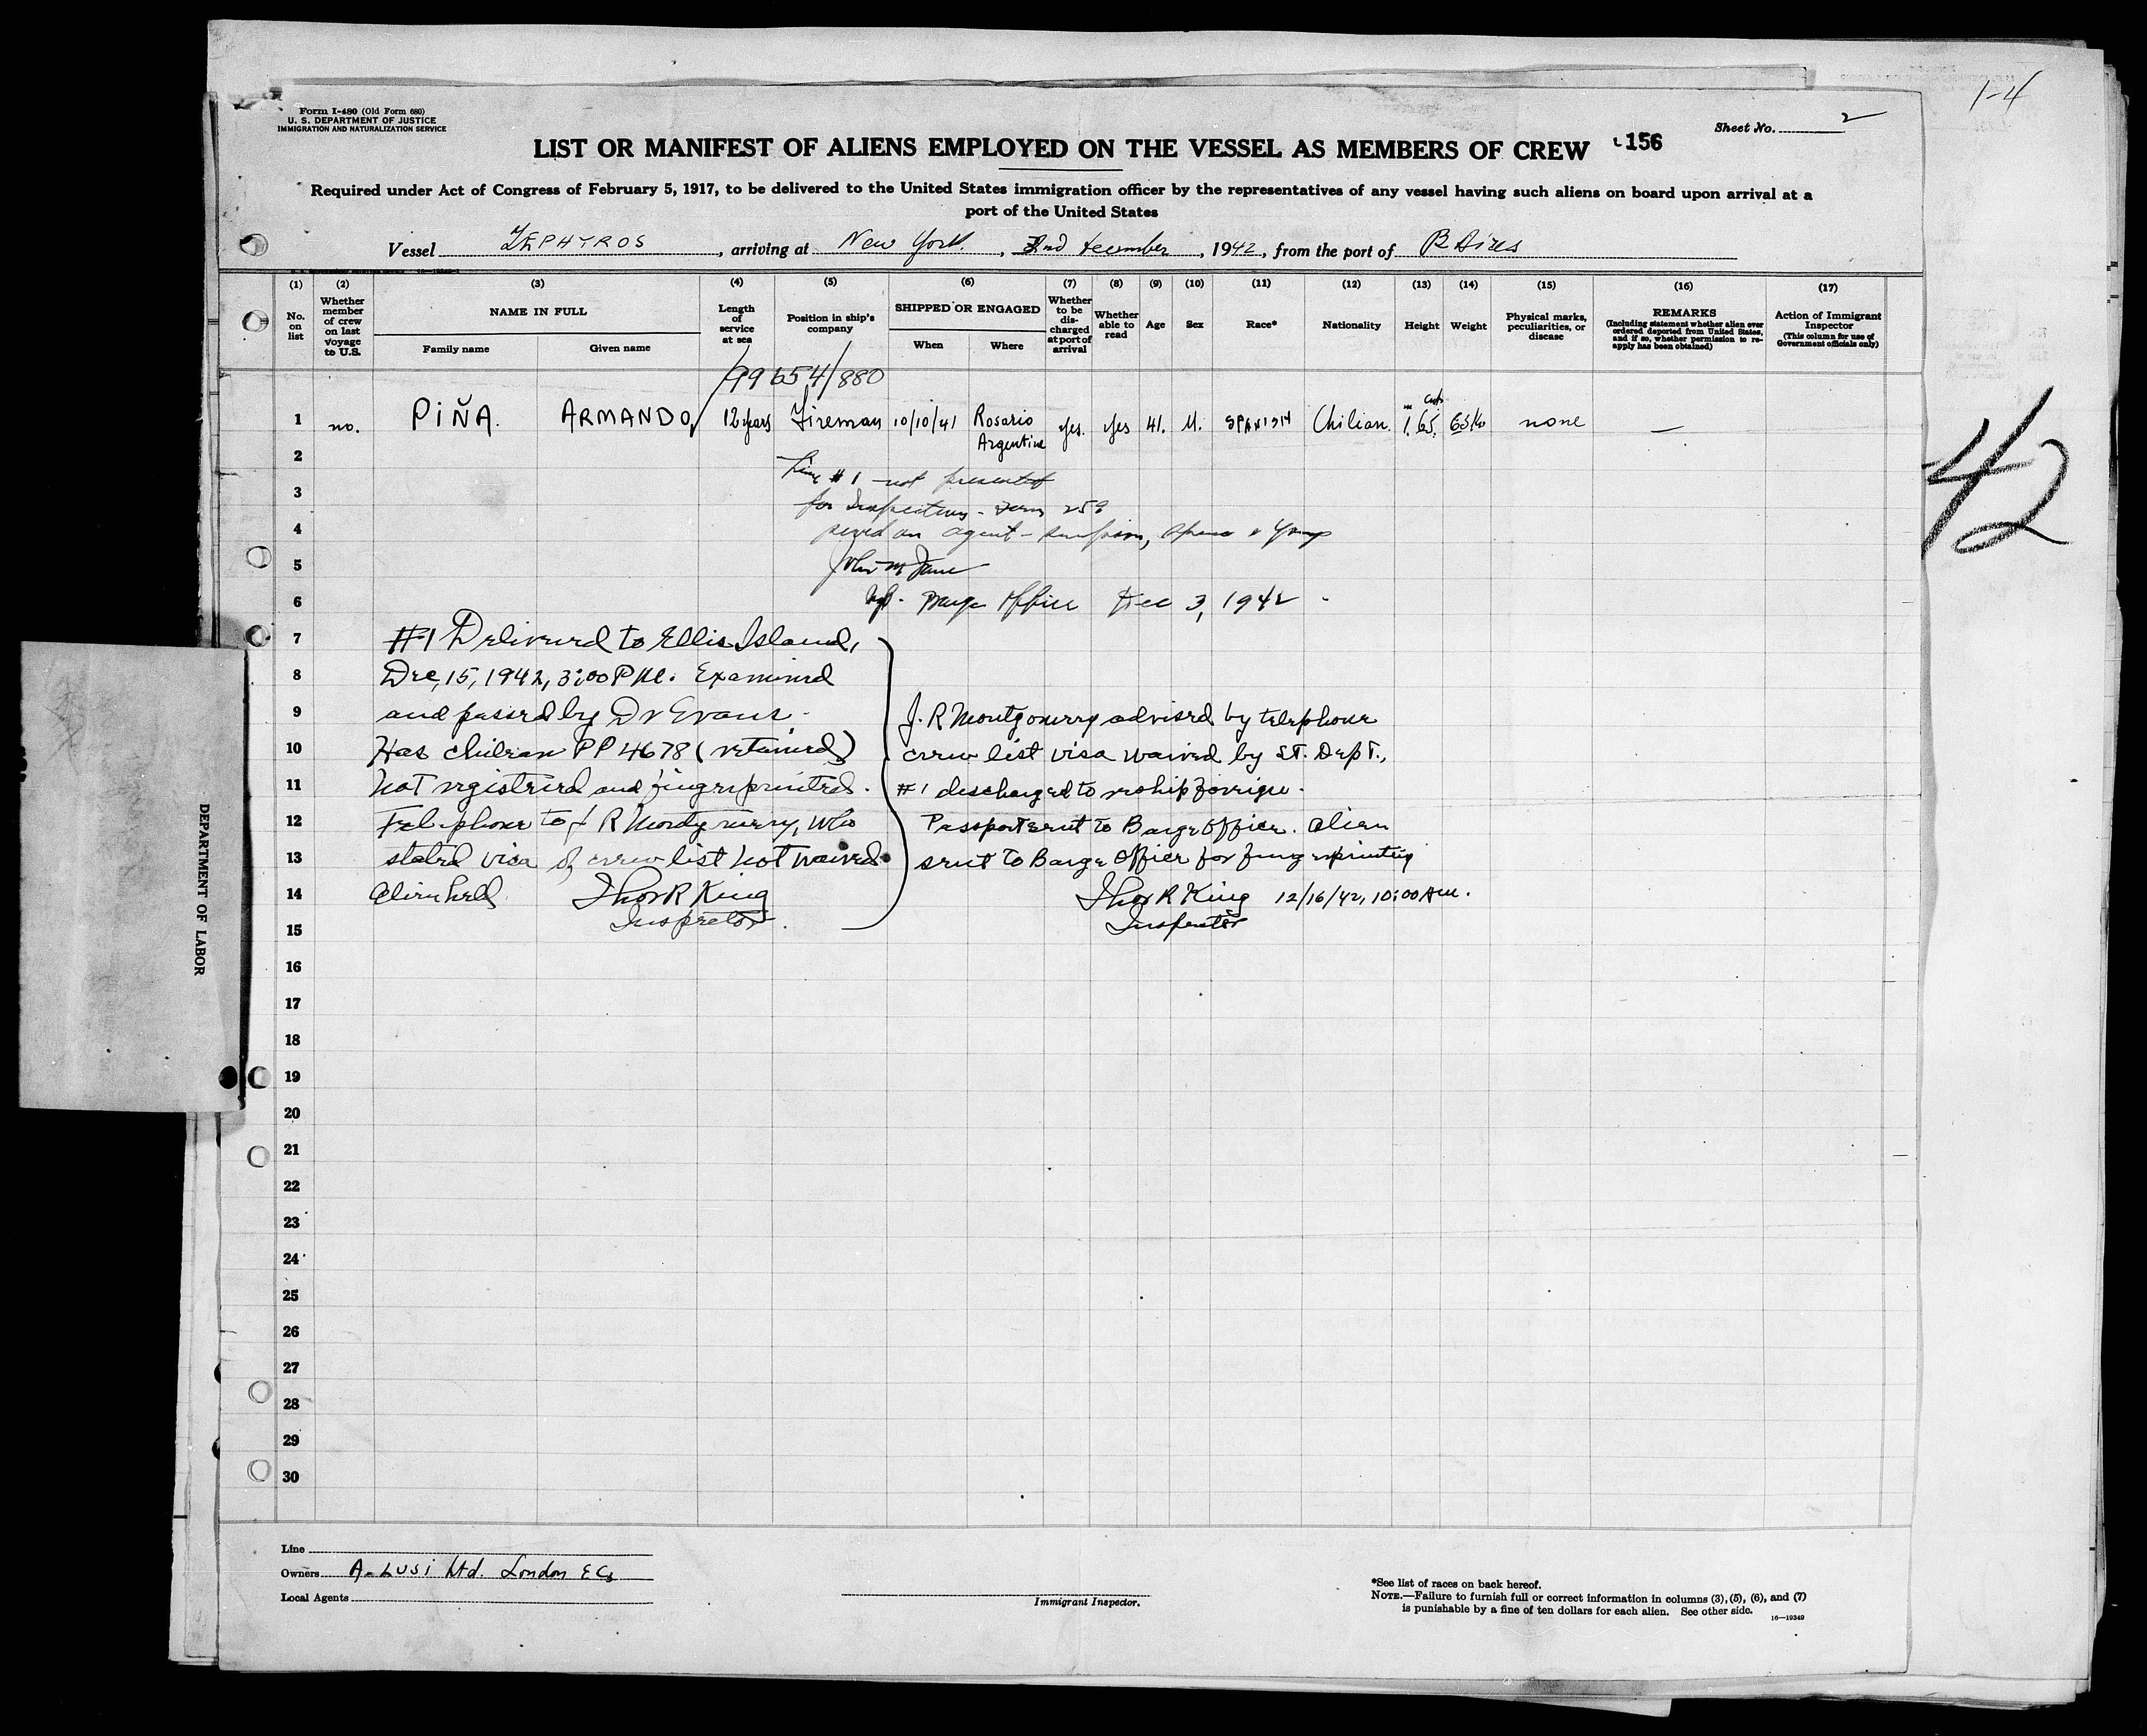 1-4
Form I-480 (Old Form 680)
U. S. DEPARTMENT OF JUSTICE
IMMIGRATION AND NATURALIZATION SERVICE
Sheet No. 2
LIST OR MANIFEST OF ALIENS EMPLOYED ON THE VESSEL AS MEMBERS OF CREW 156
Required under Act of Congress of February 5, 1917, to be delivered to the United States immigration officer by the representatives of any vessel having such aliens on board upon arrival at a
port of the United States
Vessel ZEPHYROS, arriving at New York, 2nd December, 1942, from the port of B Aires
(1) (2) (3) (4) (5) (6) (7) (8) (9) (10) (11) (12) (13) (14) (15) (16) (17)
No. on list
Whether member of crew on last voyage to U.S.
NAME IN FULL
Family name
Given name
Length of service at sea
Position in ship's company
SHIPPED OR ENGAGED
When
Where
Whether to be discharged at port of arrival
Whether able to read
Age
Sex
Race*
Nationality
Height
Weight
Physical marks, peculiarities, or disease
REMARKS
(Including statement whether alien ever ordered deported from United States, and if so, whether permission to reapply has been obtained)
Action of Immigrant Inspector
(This column for use of Government officials only)
99654/880
1 no. PIÑA. ARMANDO 12 years Fireman 10/10/41 Rosario Argentine yes. yes 41. M. SPANISH Chilian. 1.65. 65 Ko none —
42
2 Line #1 not presented
3 for Inspection - Form 259
4 served on agent - Simpson, Spence & Young
5 John M
6 Barge Office Dec 3, 1942
7 #1 Delivered to Ellis Island,
8 Dec, 15, 1942, 3:00 P.M. Examined
9 and passed by Dr Evans.
10 Has chilean PP 4678 (retained)
11 not registered and fingerprinted.
12 Telephone to J R Montgomery, who
13 stated visa of crew list not waived
14 Alien held Thos R King
15 Inspector.
J. R Montgomery advised by telephone
crew list visa waived by ST. Dept.,
#1 discharged to reship foreign.
Passport sent to Barge Office. Alien
sent to Barge Office for fingerprinting
Thos R King 12/16/42, 10:00 AM.
Inspector
16
17
18
19
20
21
22
23
24
25
26
27
28
29
30
DEPARTMENT OF LABOR
Line
Owners A. LUSI Ltd. London EC3
Local Agents
Immigrant Inspector.
*See list of races on back hereof.
NOTE.—Failure to furnish full or correct information in columns (3), (5), (6), and (7)
is punishable by a fine of ten dollars for each alien. See other side.
16—19349